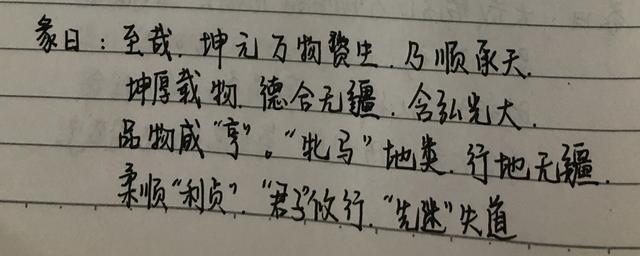 彖曰：至哉.坤元万物资生.乃顺承天.
坤厚载物.德合无疆.含弘光大.
品物咸“亨”。“牝马”地类.行地无疆.
柔顺“利贞”.“君子”攸行.“先迷”失道